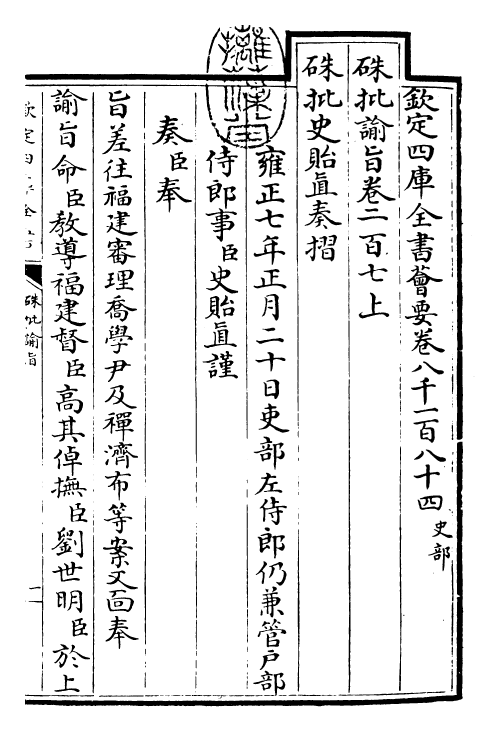 欽定四庫全書薈要卷八千一百八十四 史部
硃批諭旨卷二百七上
硃批史貽直奏摺
雍正七年正月二十日吏部左侍郎仍兼管戶部
侍郎事臣史貽直謹
奏臣奉
旨差往福建審理喬學尹及禪濟布等案又面奉
諭旨命臣教導福建督臣高其倬撫臣劉世明臣於上
硃批諭旨
一